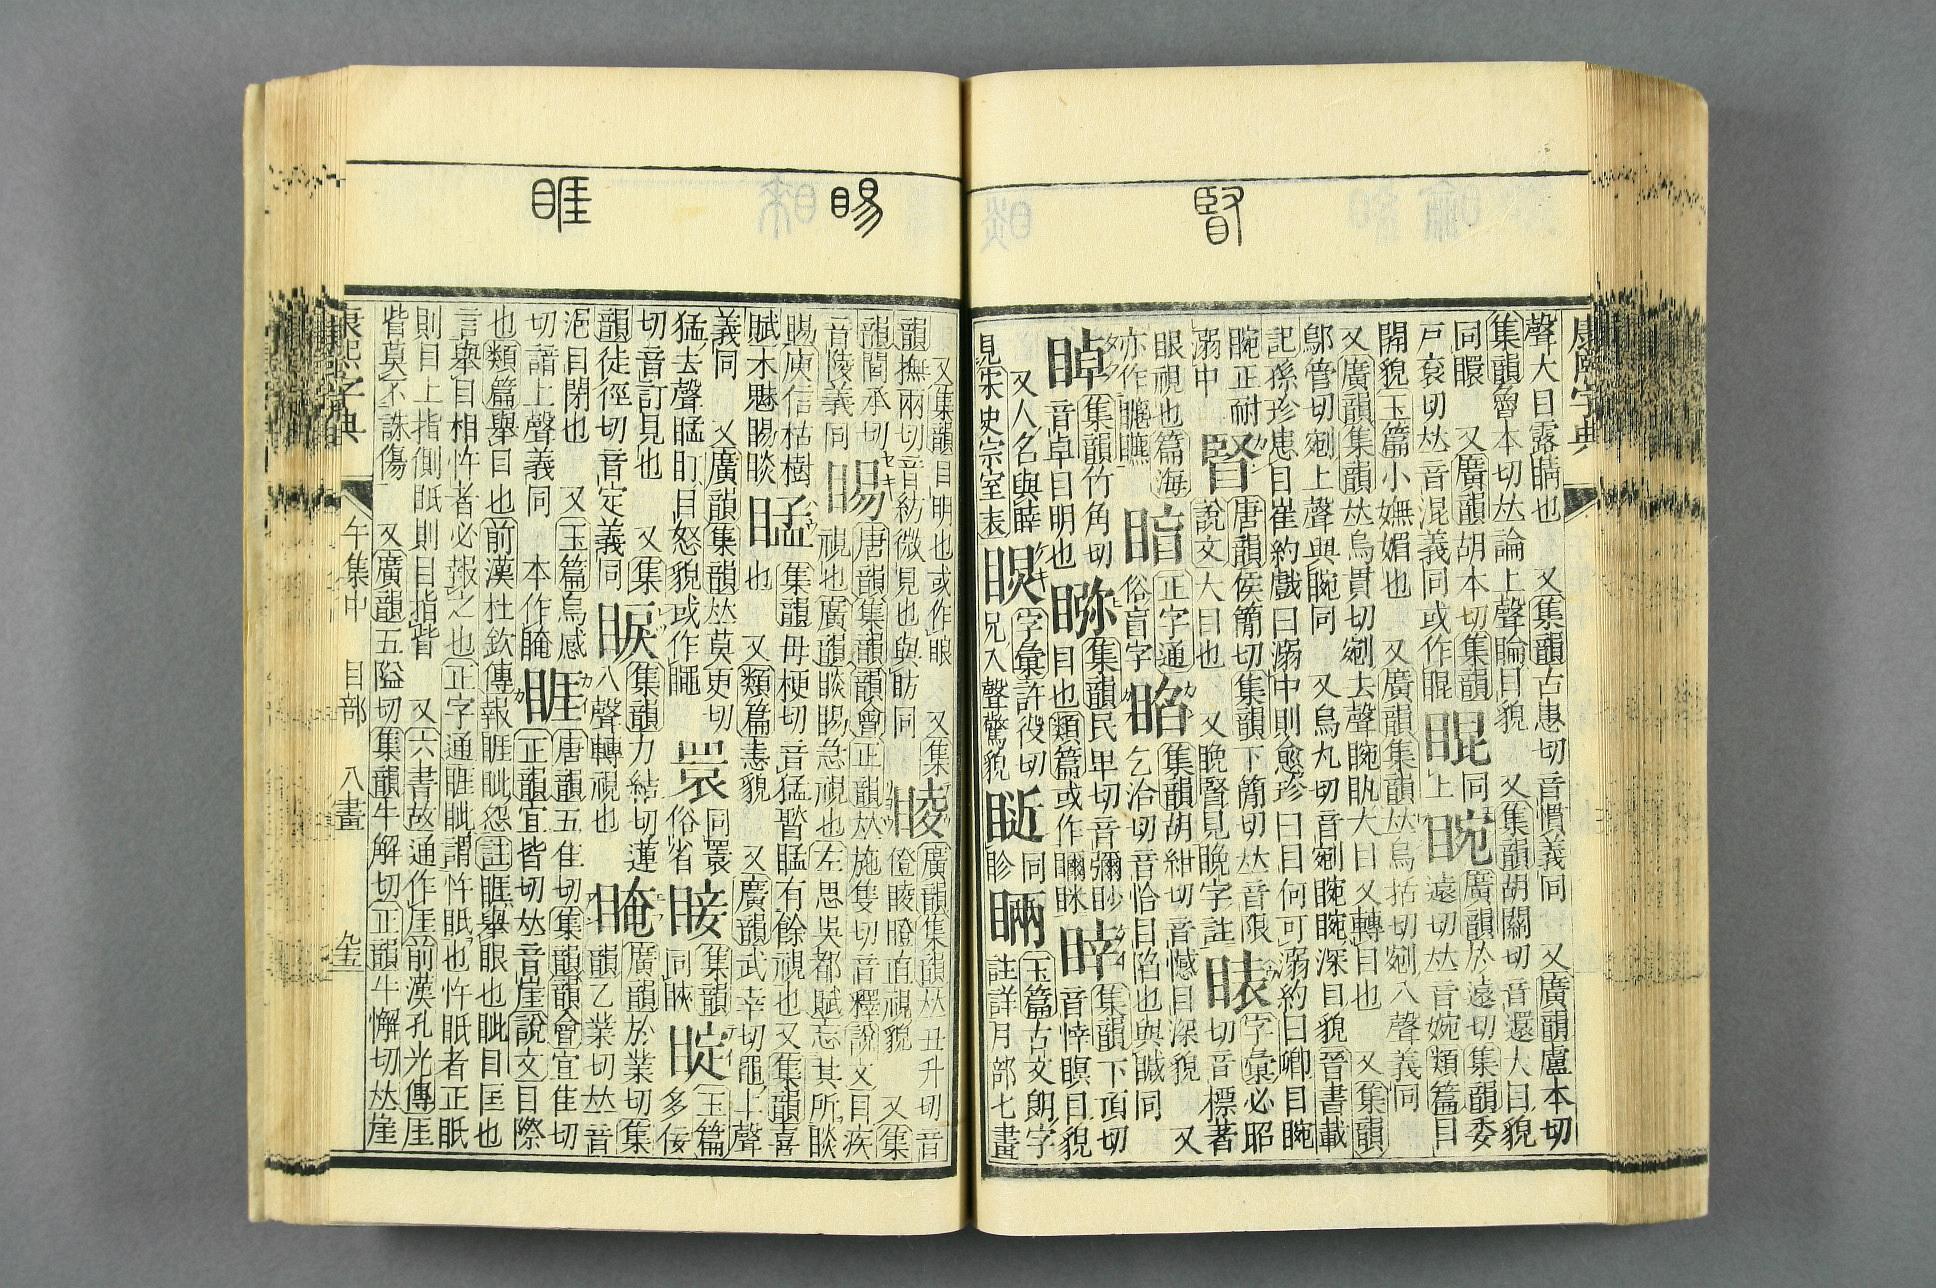 臤
康熙字典
聲大目露睛也　又集韻古患切音慣義同　又廣韻盧本切
集韻魯本切𠀤論上聲睔目貌　又集韻胡關切音還大目貌
同睘　又廣韻胡本切集韻
戸袞切𠀤音混義同或作睴
睍
同
上
睕
廣韻於遠切集韻委
遠切𠀤音婉類篇目
開貌玉篇小嫵媚也　又廣韻集韻𠀤烏括切剜入聲義同
又廣韻集韻𠀤烏貫切剜去聲睕䀎大目又轉目也　又集韻
鄔管切剜上聲與睕同　又烏丸切音剜睕睕深目貌晉書載
記孫珍患目崔約戲曰溺中則愈珍曰目何可溺約曰卿目睕
睕正耐
溺中
唐韻侯簡切集韻下簡切𠀤音限
說文大目也　又睌賢見睌字註
字彙必昭
切音標著
眼視也篇海
亦作瞧
暗
正字通
俗盲字
睰
集韻胡紺切音憾目深貌　又
乞洽切音恰目陷也與䁍同
睅
集韻竹角切
音卓目明也
集韻民早切音彌眇
目也類篇或作瞇眯
睟
集韻下頂切
音悻瞑目貌
又人名與薛
見宋史宗室表
字彙許役切
入聲驚貌
同
眕
玉篇古文朗字
註詳月部七畫
睗
睚
又集韻目明也或作眼　又集
韻撫兩切音紡微見也與昉同
睖
廣韻集韻𠀤丑升切音
僜睖瞪直視貌　又集
韻閭承切
音陵義同
睗
唐韻集韻韻會正韻𠀤施隻切音釋說文目疾
視也廣韻睒睗急視也左思吳都賦忘其所睒
睗庾信枯樹
賦木魅睗睒
猛
集韻母梗切音猛䁅䁅有餘視也又集韻喜
也　又類篇恚貌　又廣韻武幸切黽上聲
義同　又廣韻集韻𠀤莫更切
猛去聲䁅盯目怒貌或作䁇
同睘
俗省
睫
集韻
同䀹
睼
玉篇
多佞
切音訂見也　又集
韻徒徑切音定義同
睙
集韻力結切蓮
入聲轉視也
䁆
廣韻於業切集
韻乙業切𠀤音
浥目閉也　又玉篇烏感
切諳上聲義同　本作晻
睚
唐韻五佳切集韻韻會宜佳切
正韻宜皆切𠀤音崖說文目際
也類篇舉目也前漢杜欽傳報睚眦怨註睚舉眼也眦目匡也
言舉目相忤者必報之也正字通睚眦謂忤眂也忤眂者正眂
則目上指側眂則目指眥　又六書故通作厓前漢孔光傳厓
眥莫不誅傷　又廣韻五隘切集韻牛解切正韻牛懈切𠀤崖
康熙字典
午集中　目部　八畫